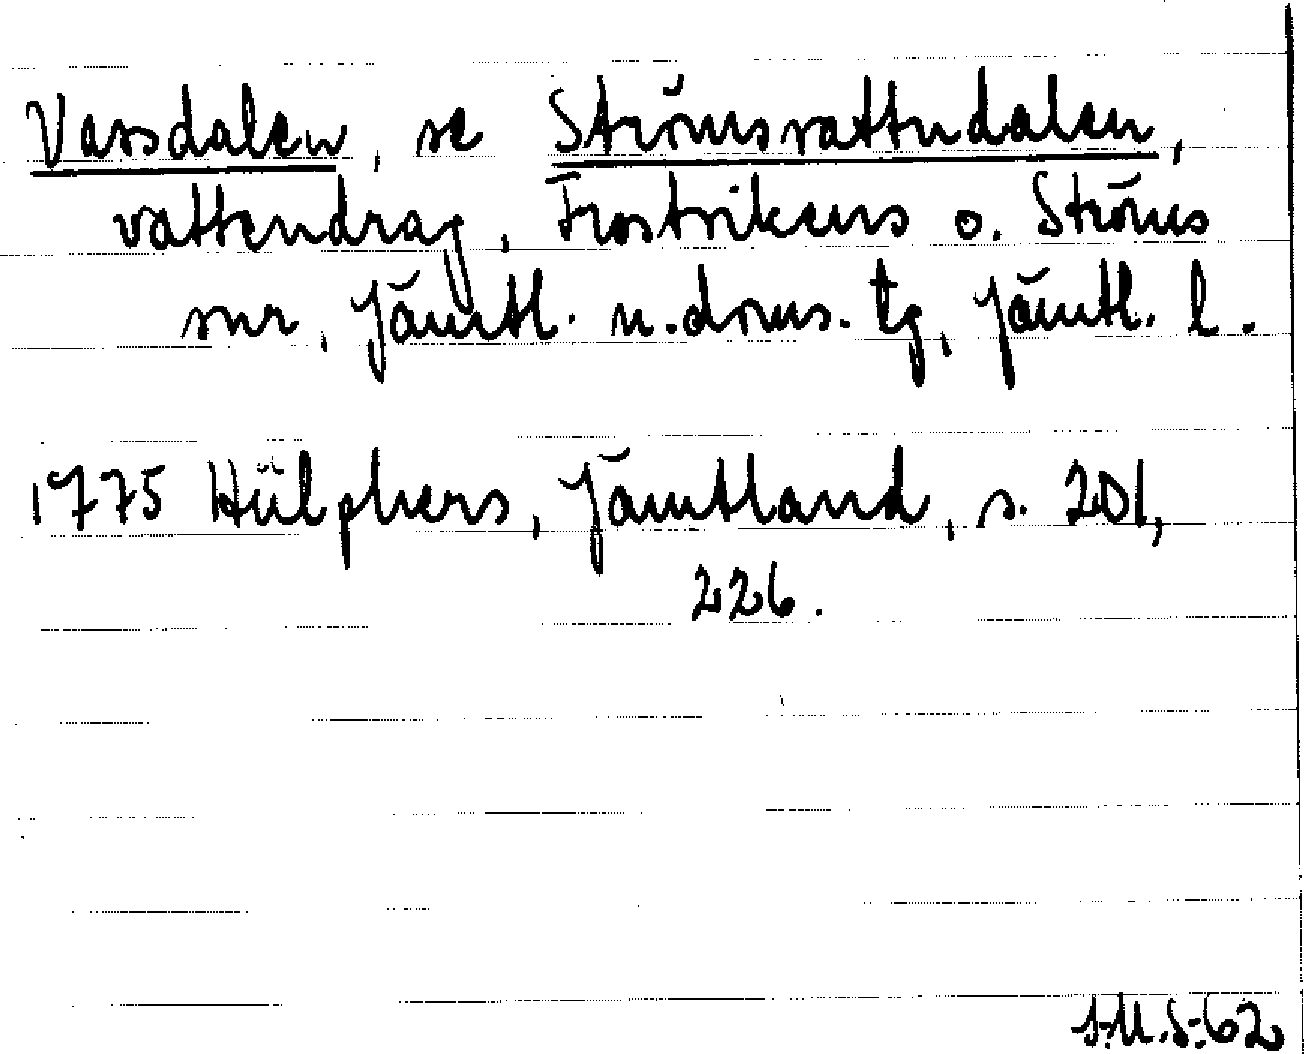 Vassdalen, se Strömsvattudalen,
vattendrag, Frostvikens o. Ströms
snr, Jämtl. n. doms. tg, Jämtl. l.
1775 Hülphers, Jämtland, s. 201,
226.